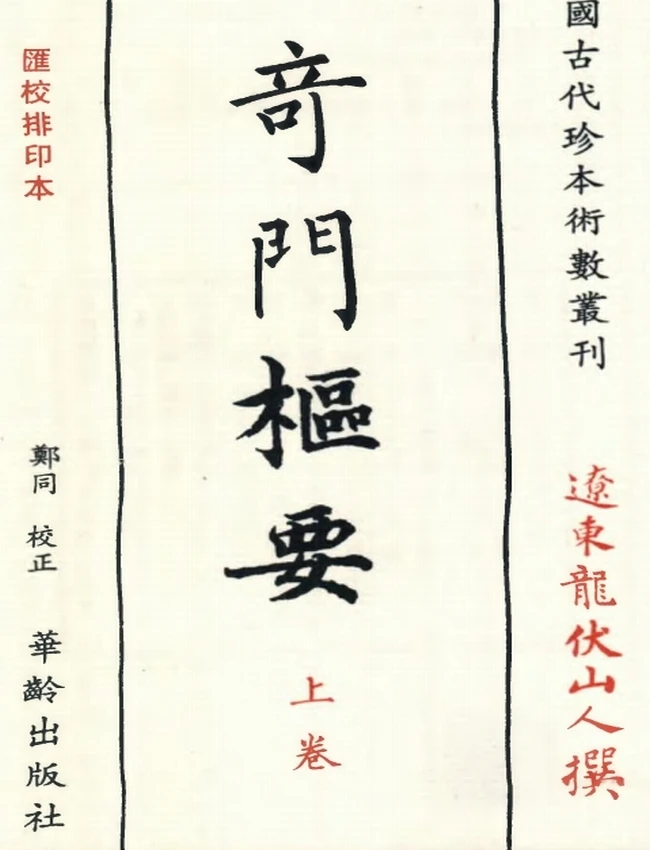 國古代珍本術數叢刊
遼東龍伏山人撰
奇門樞要
上卷
匯校排印本
鄭同 校正
華齡出版社